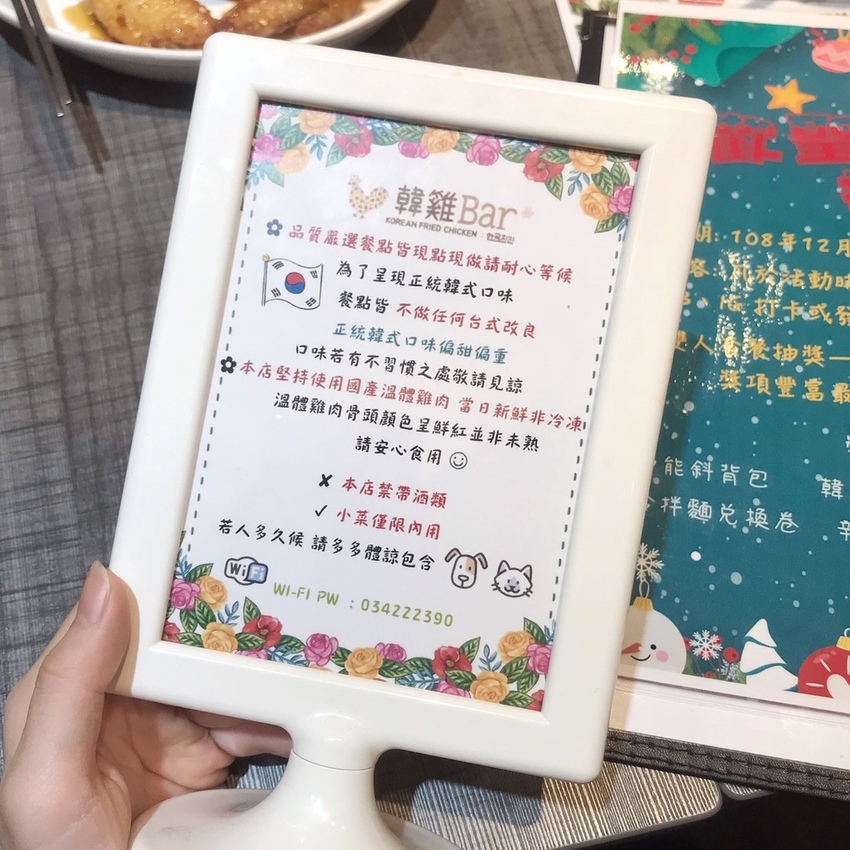 韓雞Bar
KOREAN FRIED CHICKEN : 한국치킨
品質嚴選餐點皆現點現做請耐心等候
為了呈現正統韓式口味
餐點皆 不做任何台式改良
正統韓式口味偏甜偏重
口味若有不習慣之處敬請見諒
本店堅持使用國產溫體雞肉 當日新鮮非冷凍
溫體雞肉骨頭顏色呈鮮紅並非未熟
請安心食用
本店禁帶酒類
小菜僅限內用
若人多久候 請多多體諒包含
WiFi
WI-FI PW : 034222390
期: 108年12月
打卡或發
雙人套餐抽獎
獎項豐富最
能斜背包
韓
拌麵兌換卷
辛